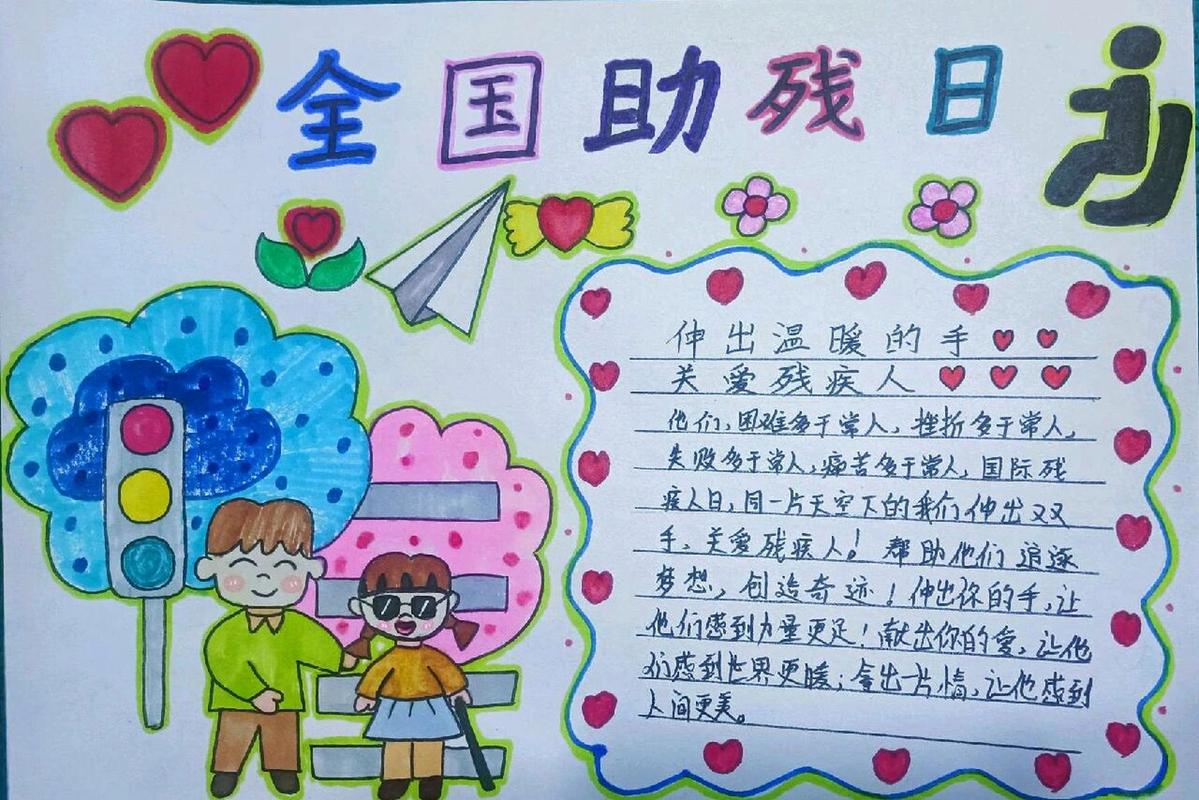 全国助残日
伸出温暖的手
关爱残疾人
他们,困难多于常人,挫折多于常人,
失败多于常人,痛苦多于常人,国际残
疾人日,同一片天空下的我们伸出双
手,关爱残疾人!帮助他们追逐
梦想,创造奇迹!伸出你的手,让
他们感到力量更足!献出你的爱,让他
们感到世界更暖;拿出一片情,让他感到
人间更美。